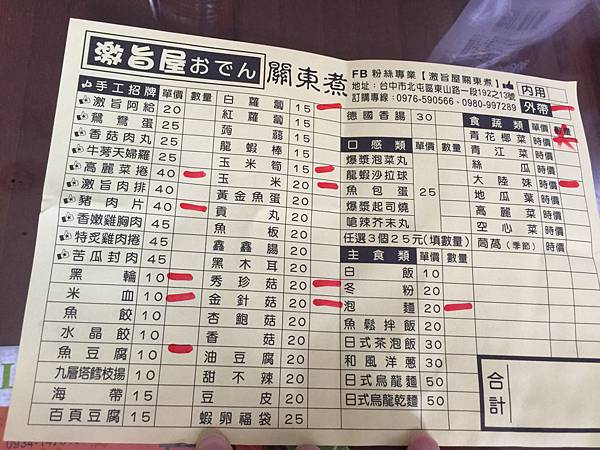 激旨屋おでん 關東煮
FB 粉絲專業【激旨屋關東煮】
地址:台中市北屯區東山路一段192之13號
訂購專線:0976-590566、0980-997289
內用
外帶
手工招牌 單價 數量
激旨阿給 20
鴛鴦蛋 25
香菇肉丸 25
牛蒡天婦羅 25
高麗菜捲 40
激旨肉排 40
豬肉片 40
香嫩雞胸肉 45
特炙雞肉捲 45
苦瓜封肉 45
黑輪 10
米血 10
魚餃 10
水晶餃 10
魚豆腐
九層塔鱈枝揚 10
海帶 15
百頁豆腐 15
白蘿蔔 15
紅蘿蔔 15
蒟蒻 15
龍蝦棒 15
玉米筍 15
玉米 20
黃金魚蛋 20
貢丸 20
魚板 20
鑫鑫腸 20
黑木耳 20
秀珍菇 20
金針菇 20
杏鮑菇 20
香菇 20
油豆腐 20
甜不辣 20
豆皮 20
蝦卵福袋 25
德國香腸 30
口感類 單價 數量
爆漿泡菜丸
龍蝦沙拉球
魚包蛋 25
爆漿起司燒
嗆辣芥末丸
任選3個25元(填數量)
主食類 單價 數量
白飯 10
冬粉 20
泡麵 20
魚鬆拌飯 20
日式茶泡飯 30
和風洋蔥 30
日式烏龍麵 50
日式烏龍乾麵 50
食蔬類 單價 數量
青花椰菜 時價
青江菜 時價
絲瓜 時價
大陸妹 時價
地瓜葉 時價
高麗菜 時價
空心菜 時價
茼萵(季節) 時價
合計